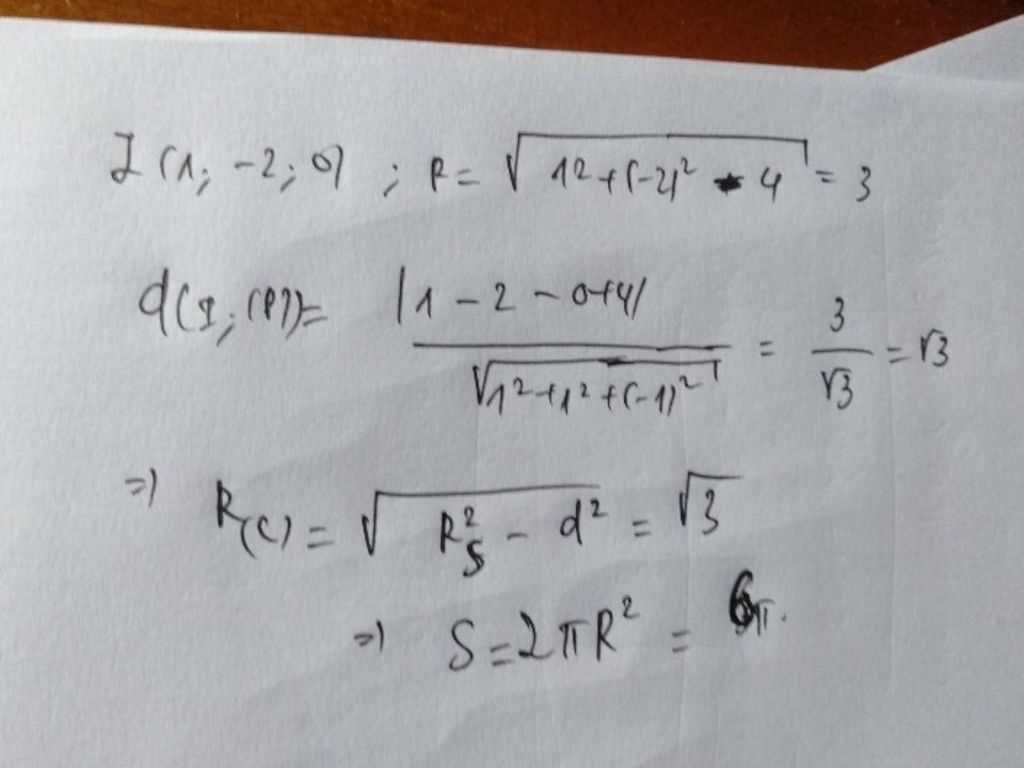 I (1; -2; 0) ; R = √(1² + (-2)² - 4) = 3
d(I; (P)) = |1 - 2 - 0 + 4| / √(1² + 1² + (-1)²) = 3/√3 = √3
=) R(C) = √(R²S - d²) = √3
=) S = 2πR² = 6π.